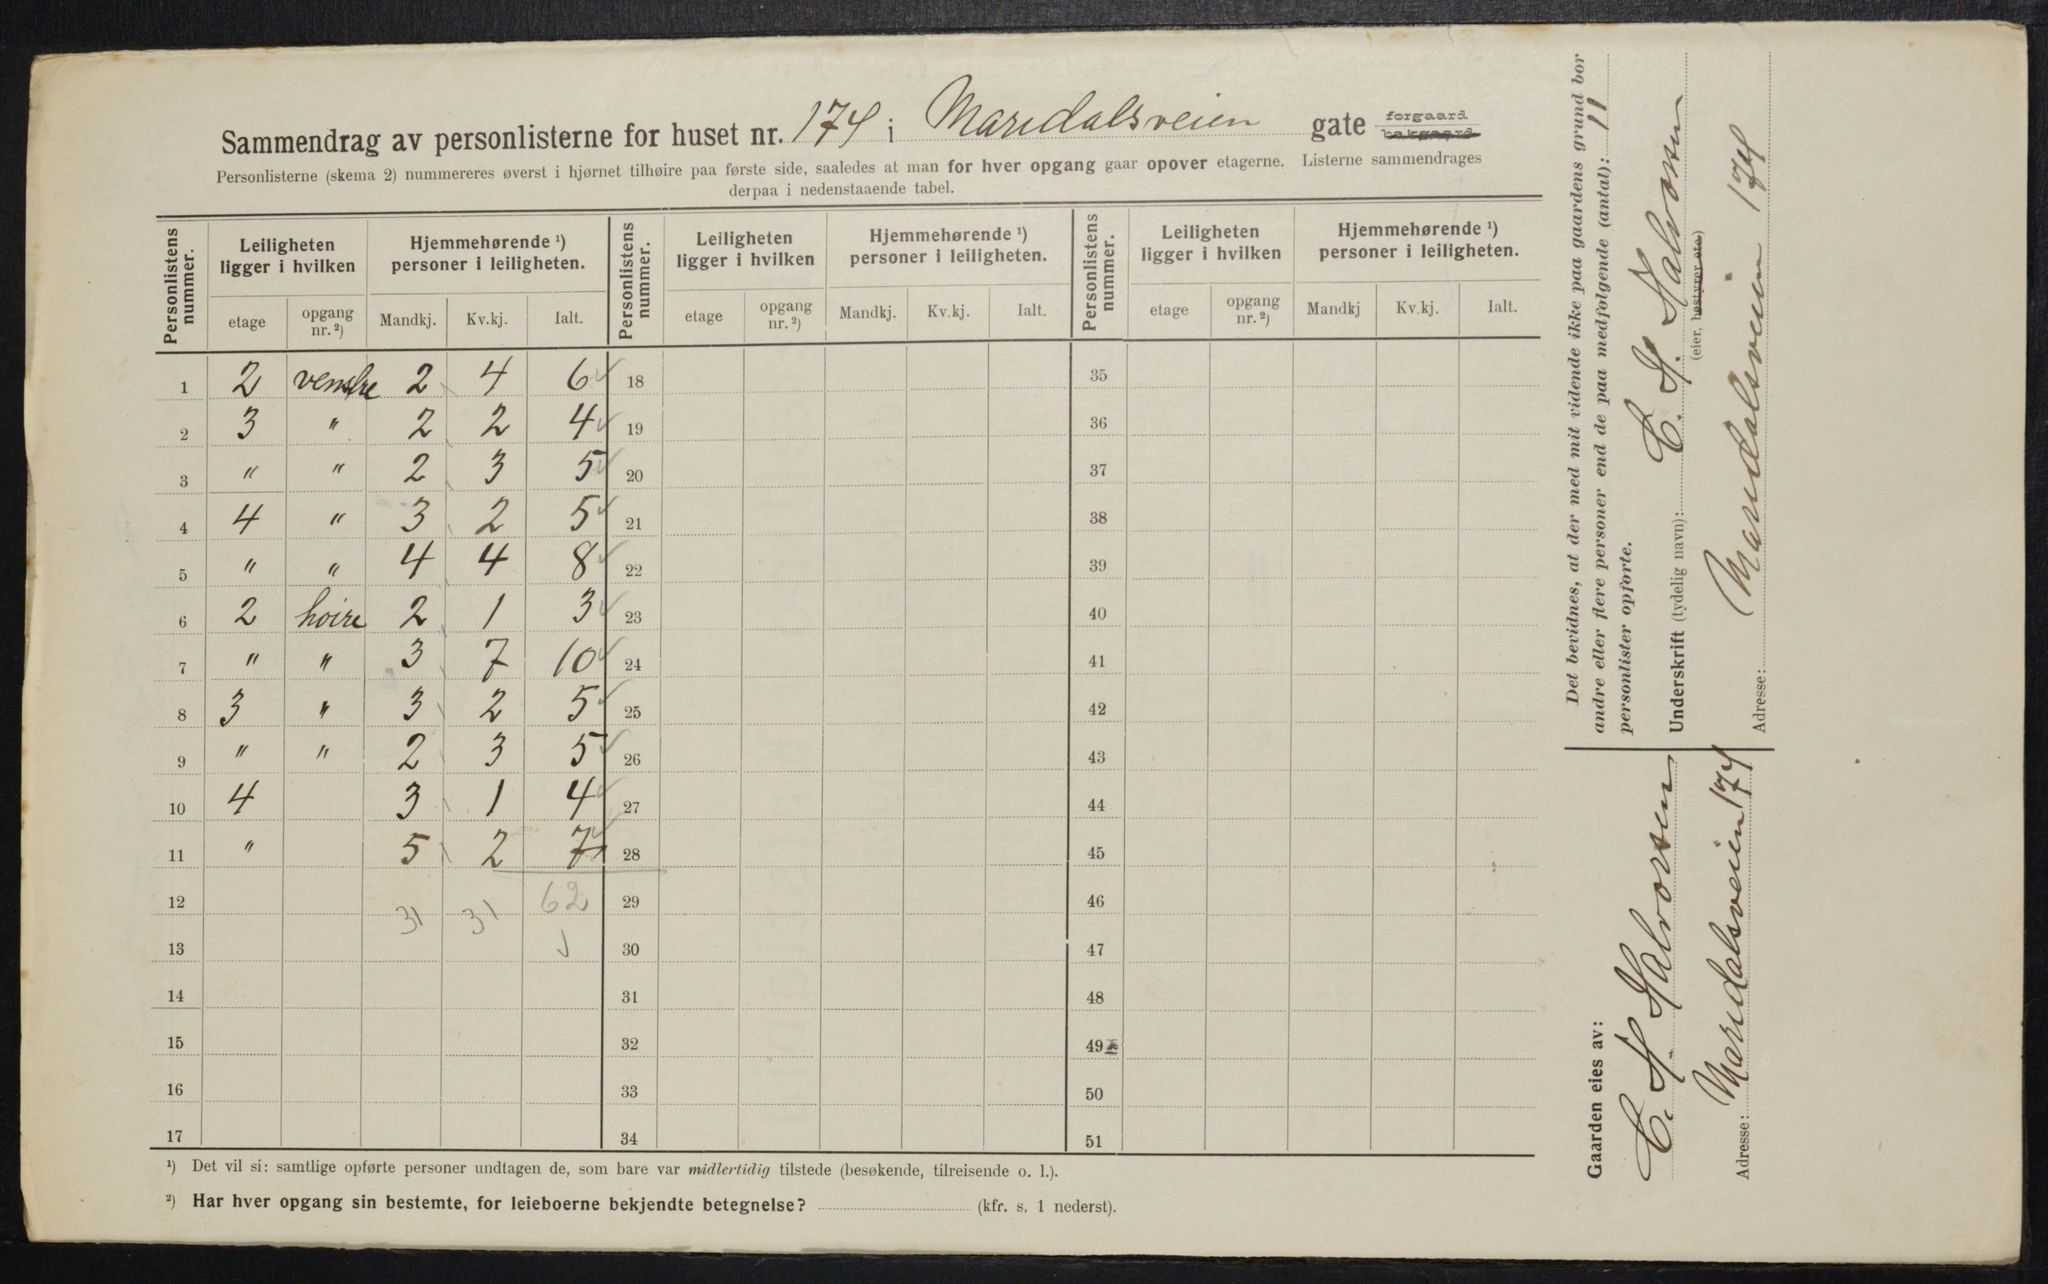 Sammendrag av personlisterne for huset nr. 174 i Maridalsveien gate forgaard
bakgaard
Personlisterne (skema 2) nummereres øverst i hjørnet tilhøire paa første side, saaledes at man for hver opgang gaar opover etagerne. Listerne sammendrages
derpaa i nedenstaaende tabel.
Personlistens nummer. Leiligheten ligger i hvilken Hjemmehørende ¹) personer i leiligheten. Personlistens nummer. Leiligheten ligger i hvilken Hjemmehørende ¹) personer i leiligheten. Personlistens nummer. Leiligheten ligger i hvilken Hjemmehørende ¹) personer i leiligheten.
etage opgang nr. ²) Mandkj. Kv.kj. Ialt. etage opgang nr. ²) Mandkj. Kv.kj. Ialt. etage opgang nr. ²) Mandkj Kv.kj. Ialt.
1 2 venstre 2 4 6 18 35
2 3 " 2 2 4 19 36
3 " " 2 3 5 20 37
4 4 " 3 2 5 21 38
5 " " 4 4 8 22 39
6 2 hoire 2 1 3 23 40
7 " " 3 7 10 24 41
8 3 " 3 2 5 25 42
9 " " 2 3 5 26 43
10 4 3 1 4 27 44
11 " 5 2 7 28 45
12 31 31 62 29 46
13 30 47
14 31 48
15 32 49
16 33 50
17 34 51
¹) Det vil si: samtlige opførte personer undtagen de, som bare var midlertidig tilstede (besøkende, tilreisende o. l.).
²) Har hver opgang sin bestemte, for leieboerne bekjendte betegnelse? (kfr. s. 1 nederst).
Det bevidnes, at der med mit vidende ikke paa gaardens grund bor
andre eller flere personer end de paa medfølgende (antal): 11
personlister opførte.
Underskrift (tydelig navn): C. H. Halvorsen
(eier, bestyrer etc)
Adresse: Maridalsveien 174
Gaarden eies av:
C. H. Halvorsen
Adresse: Maridalsveien 174